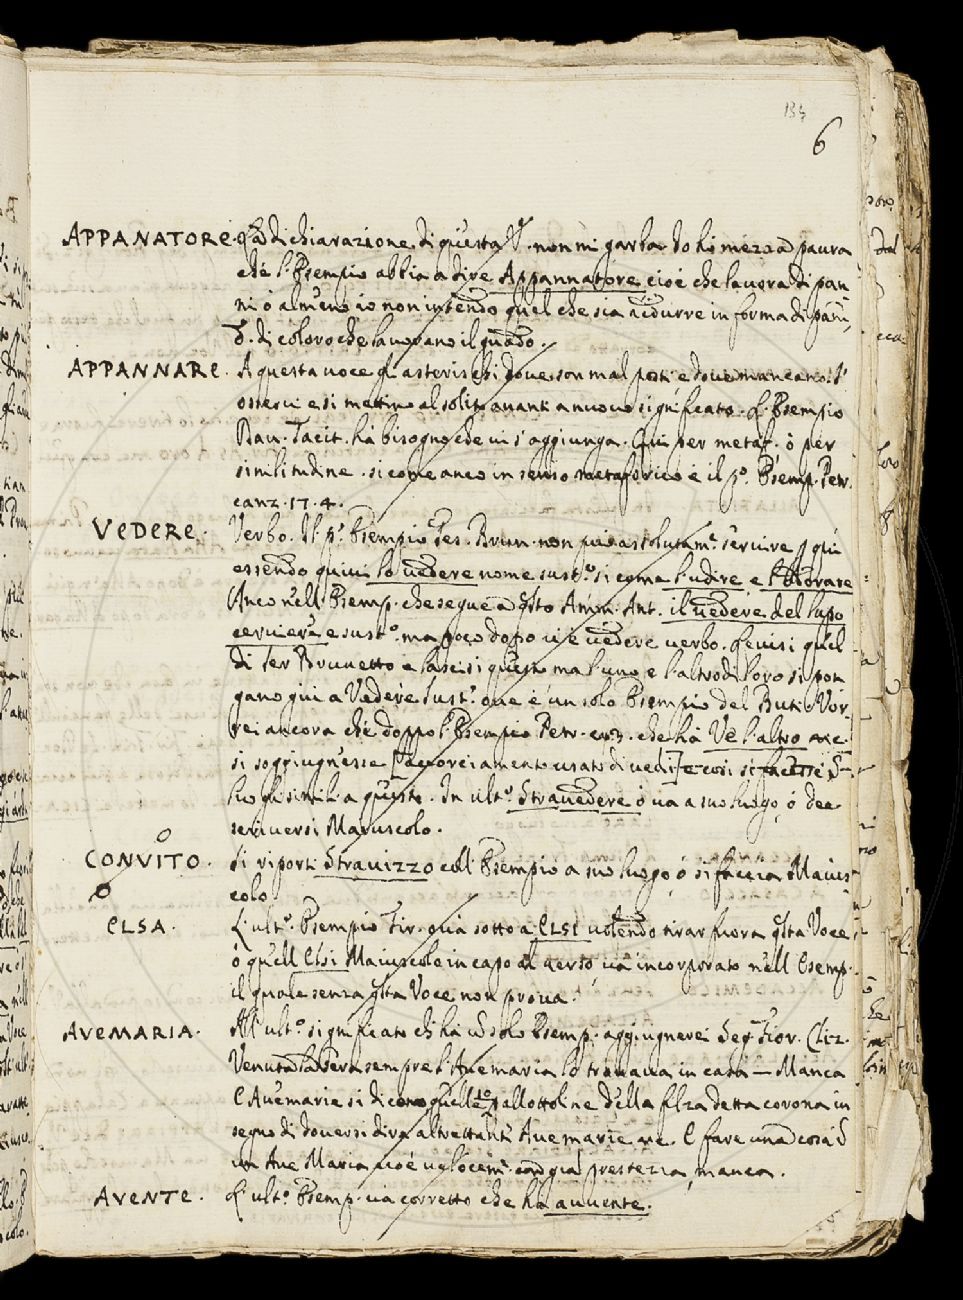 134
6
APPANATORE. La dichiarazione di questa V. non mi garba. Io hò mezza paura
che l'Esempio abbia a dire Appannatore cioè che lavora di pan
ni ò almeno io non intendo quel che sia ridurre in forma di pani,
d. di coloro che lavorano il guado.
APPANNARE. A questa voce gl'asterischi dove son mal posti e dove mancano: s'
osservi e si mettino al solito avanti a nuovo significato. L'Esempio
Dav. Tacit. hà bisogno che vi s'aggiunga. Qui per metaf. ò per
similitudine. si come anco in senso metaforico è il p.º Esemp. Petr.
canz. 17. 4.
VEDERE. Verbo. Il p.º Esempio Tes. Brun. non può assolutam.e servire p qui
essendo quivi lo vedere nome sust.º si come l'udire e l'odorare
Anco nell'Esemp. che segue a qsto Amm. Ant. il vedere del lupo
cerviere e sust.º ma poco dopo vi è vedere verbo. Levisi quel
di Ser Brunetto e lascisi questo ma l'uno e l'altro di loro si pon
gano qui a Vedere sust.º ove è un solo Esempio del Buti. Vor-
rei ancora che doppo l'Esempio Petr. che hà Ve l'altro
si soggiugnesse [accorciamento usato di vedi] e così si facesse
simili a questo. In ult.º Stravedere ò va a suo luogo, ò dee
scriversi Maiuscolo.
CONVITO. Si riporti Stravizzo coll'Esempio a suo luogo ò si faccia Maius
colo.
ELSA. L'ult.º Esempio Fir. và sotto a ELSE volendo tirar fuora qsta Voce,
ò quell Elsi Maiuscole in capo al verso và incorporato nell Esemp.
il quale senza qsta Voce non prova.
AVEMARIA. All'ult.º significato ch hà un solo Esemp. aggiugnerei Segr. Fior. Cliz.
Venuta la sera sempre l'Avemaria lo trovava in casa — Manca
E Avemarie si dicono quelle 10 pallottoline della filza detta corona in
segno di doversi dire altrettanti Avemarie. E fare una cosa
un Ave Maria, cioè velocem.e con gra prestezza, manca.
AVENTE. L'ult.º Esemp. và corretto che hà auuente.